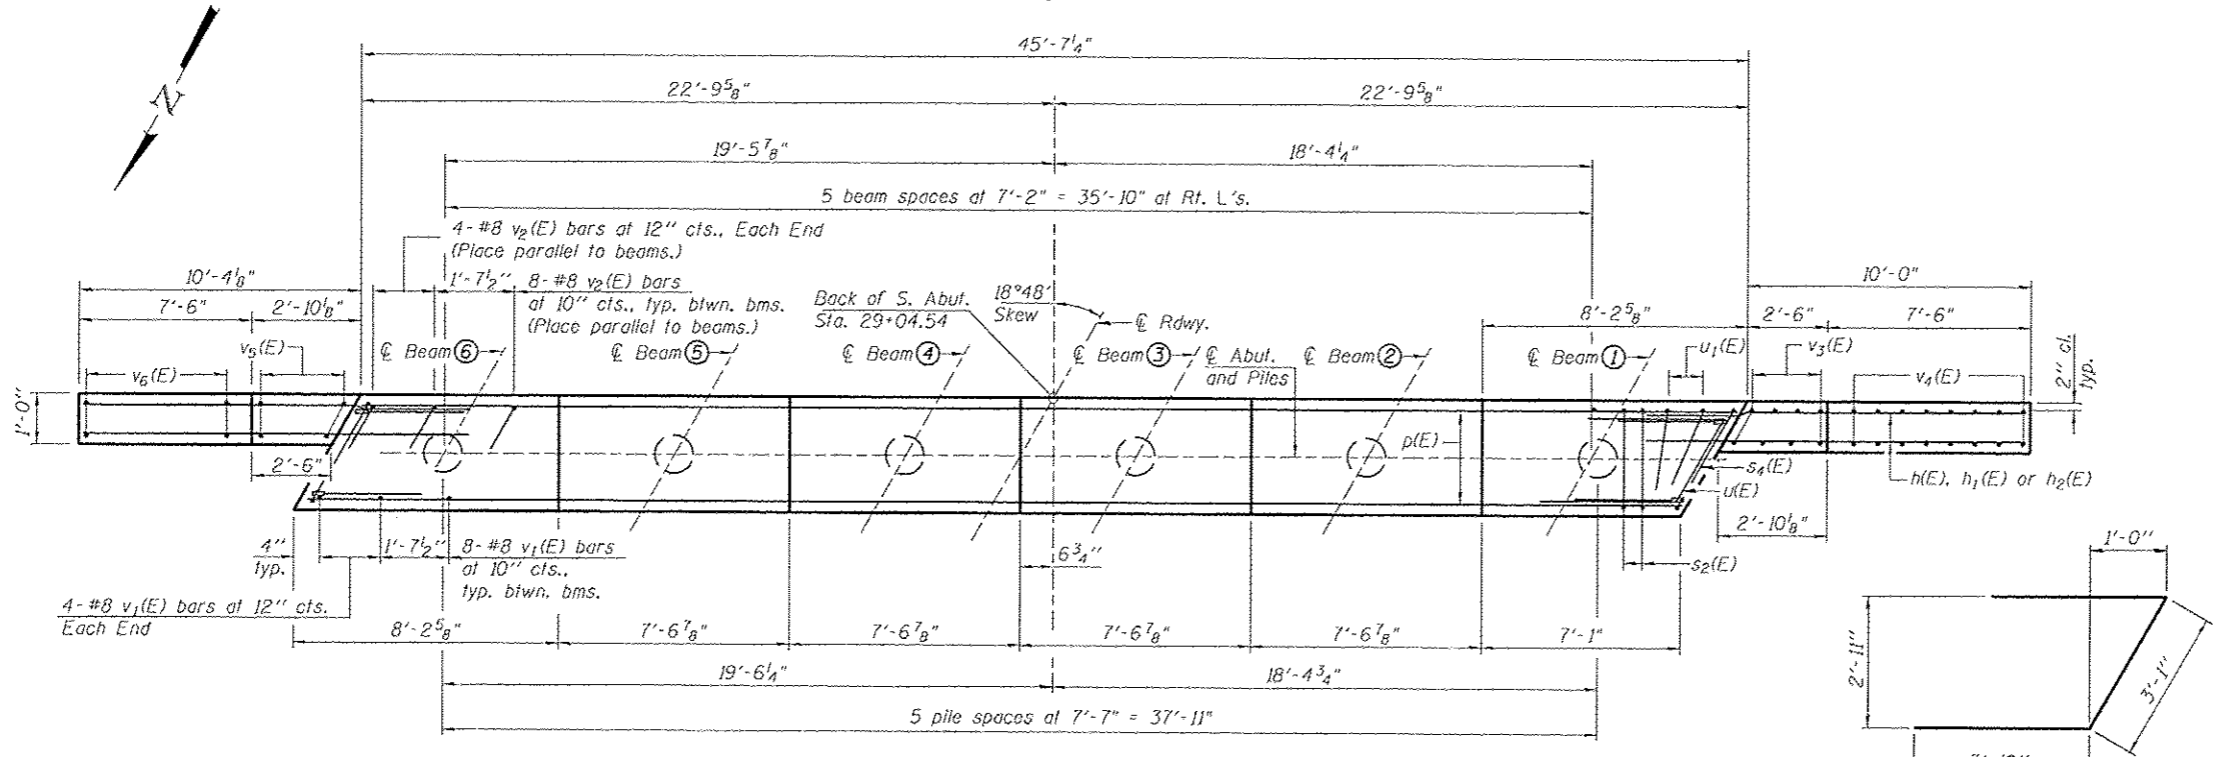 45'-7 1/4"
22'-9 5/8"
22'-9 5/8"
N
19'-5 7/8"
18'-4 1/4"
5 beam spaces at 7'-2" = 35'-10" at Rt. L's.
4- #8 v2(E) bars at 12" cts., Each End
(Place parallel to beams.)
10'-4 1/8"
1'-7 1/2"
8- #8 v2(E) bars
at 10" cts., typ. btwn. bms.
(Place parallel to beams.)
7'-6"
2'-10 1/8"
Back of S. Abut.
Sta. 29+04.54
18°48'
Skew
℄ Rdwy.
10'-0"
8'-2 5/8"
2'-6"
7'-6"
2" cl.
typ.
v5(E)
v6(E)
℄ Beam 6
℄ Beam 5
℄ Beam 4
℄ Beam 3
℄ Abut.
and Piles
℄ Beam 2
℄ Beam 1
u1(E)
v3(E)
v4(E)
1'-0"
2'-6"
p(E)
s4(E)
u(E)
h(E), h1(E) or h2(E)
2'-10 1/8"
s2(E)
4"
typ.
1'-7 1/2"
8- #8 v1(E) bars
at 10" cts.,
typ. btwn. bms.
6 3/4"
4- #8 v1(E) bars at 12" cts.
Each End
8'-2 5/8"
7'-6 7/8"
7'-6 7/8"
7'-6 7/8"
7'-6 7/8"
7'-1"
19'-6 1/4"
18'-4 3/4"
5 pile spaces at 7'-7" = 37'-11"
1'-0"
2'-11"
3'-1"